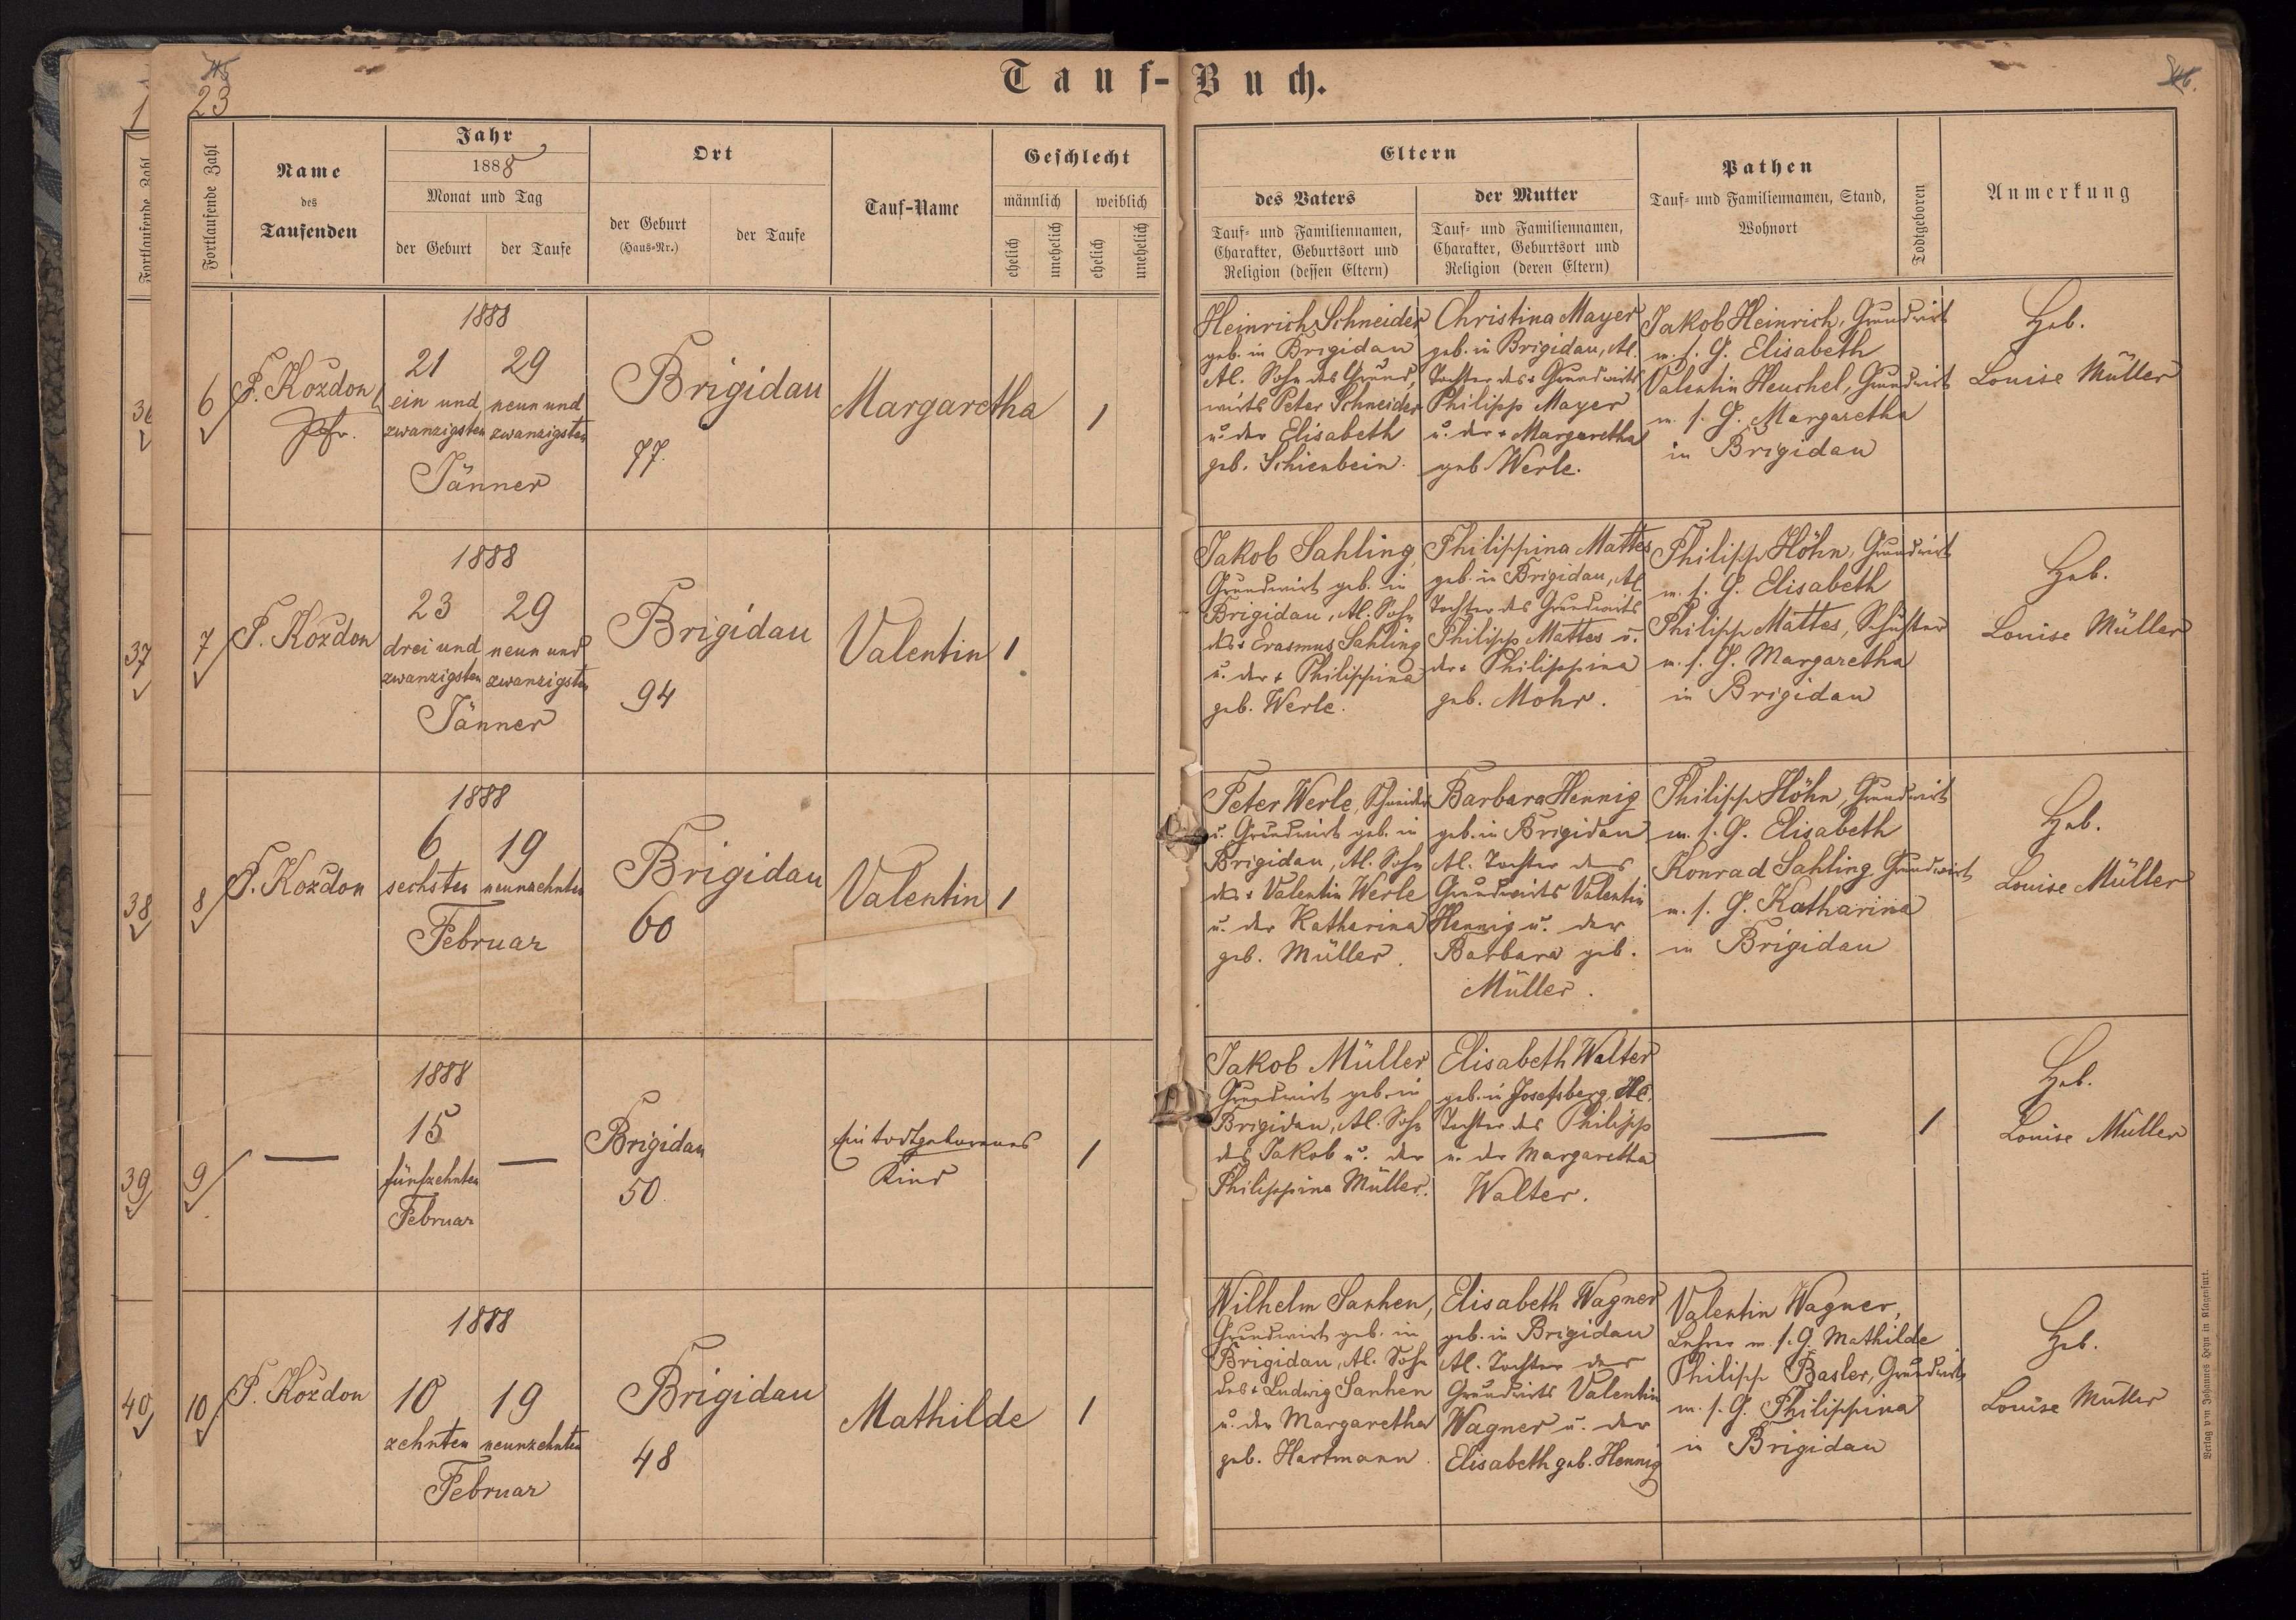 Tauf-Buch.
23
Fortlaufende Zahl
Name
des
Taufenden
Jahr
1888
Monat und Tag
der Geburt
der Taufe
Ort
der Geburt
(Haus-Nr.)
der Taufe
Tauf-Name
Geschlecht
männlich
weiblich
ehelich
unehelich
ehelich
unehelich
Eltern
des Vaters
Tauf- und Familiennamen,
Charakter, Geburtsort und
Religion (dessen Eltern)
der Mutter
Tauf- und Familiennamen,
Charakter, Geburtsort und
Religion (deren Eltern)
Pathen
Tauf- und Familiennamen, Stand,
Wohnort
Todtgeboren
Anmerkung
36
6
P. Kozdon
Pfr.
1888
21 29
ein und neun und
zwanzigsten zwanzigsten
Jänner
Brigidau
77.
Margaretha
1
Heinrich Schneider
geb. in Brigidau
Al. Sohn des Grund,
wirts Peter Schneider
u. der Elisabeth
geb. Schienbein.
Christina Mayer
geb. in Brigidau, Al.
Tochter des + Grundwirts
Philipp Mayer
u. der + Margaretha
geb Werle.
Jakob Heinrich, Grundwirt
m. s. G. Elisabeth
Valentin Heuchel, Grundwirt
m. s. G. Margaretha
in Brigidau
Heb.
Louise Müller
37
7
P. Kozdon
1888
23 29
drei und neun und
zwanzigsten zwanzigsten
Jänner
Brigidau
94
Valentin
1
Jakob Sahling,
Grundwirt geb. in
Brigidau, Al. Sohn
des + Erasmus Sahling
u. der + Philippina
geb. Werle.
Philippina Mattes
geb. in Brigidau, Al.
Tochter des Grundwirts
Philipp Mattes u.
der + Philippina
geb. Mohr.
Philipp Höhn, Grundwirt
m. s. G. Elisabeth
Philipp Mattes, Schuster
m. s. G. Margaretha
in Brigidau
Heb.
Louise Müller
38
8
P. Kozdon
1888
6 19
sechsten neunzehnten
Februar
Brigidau
60
Valentin
1
Peter Werle, Schneider
u. Grundwirt geb. in
Brigidau, Al. Sohn
des + Valentin Werle
u. der Katharina
geb. Müller.
Barbara Hennig
geb. in Brigidau
Al. Tochter des
Grundwirts Valentin
Hennig u. der
Barbara geb.
Müller.
Philipp Höhn, Grundwirt
m. s. G. Elisabeth
Konrad Sahling, Grundwirt
m. s. G. Katharina
in Brigidau
Heb.
Louise Müller
39
9
—
1888
15
fünfzehnten
Februar
—
Brigidau
50.
Ein todtgeborenes
Kind
1
Jakob Müller
Grundwirt geb. in
Brigidau, Al. Sohn
des Jakob u. der
Philippina Müller.
Elisabeth Walter
geb. in Josefsberg, Al.
Tochter des Philipp
u. der Margaretha
Walter.
—
1
Heb.
Louise Müller
40
10.
P. Kozdon
1888
10 19
zehnten neunzehnten
Februar
Brigidau
48
Mathilde
1
Wilhelm Sanhen,
Grundwirt geb. in
Brigidau, Al. Sohn
des + Ludwig Sanhen
u. der Margaretha
geb. Hartmann.
Elisabeth Wagner
geb. in Brigidau
Al. Tochter des
Grundwirts Valentin
Wagner u. der
Elisabeth geb. Hennig
Valentin Wagner,
Lehrer m. s. G. Mathilde
Philipp Basler, Grundwirt
m. s. G. Philippina
in Brigidau
Heb.
Louise Müller
Verlag von Johannes Heyn in Klagenfurt.